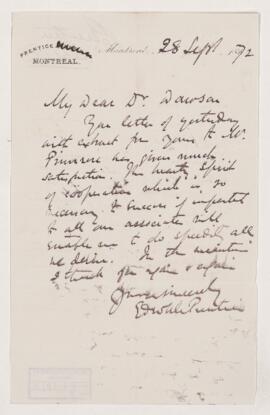 PRENTICE
MONTREAL.
Montreal, 28 Sept. 1892
My Dear Dr. Dawson
Your letter of yesterday
with extract from yours to Mr.
Primrose has given much
satisfaction. The hearty spirit
of cooperation which is so
necessary to success if imparted
to all our associates will
enable us to do speedily all
we desire. In the meantime
I thank you again & again
Yours sincerely